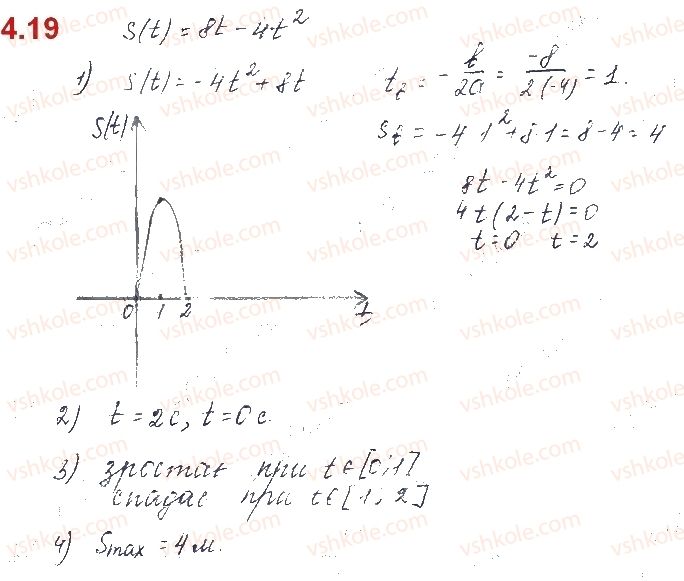 4.19
s(t) = 8t - 4t²
1) s(t) = -4t² + 8t
t₂ = - b/2a = -8/2(-4) = 1.
s₂ = -4·1² + 8·1 = 8 - 4 = 4
8t - 4t² = 0
4t(2 - t) = 0
t = 0 t = 2
S(t)
0 1 2 t
2) t = 2c, t = 0c.
3) зростає при t∈[0;1]
спадає при t∈[1; 2]
4) Smax = 4 м.
vshkole.com